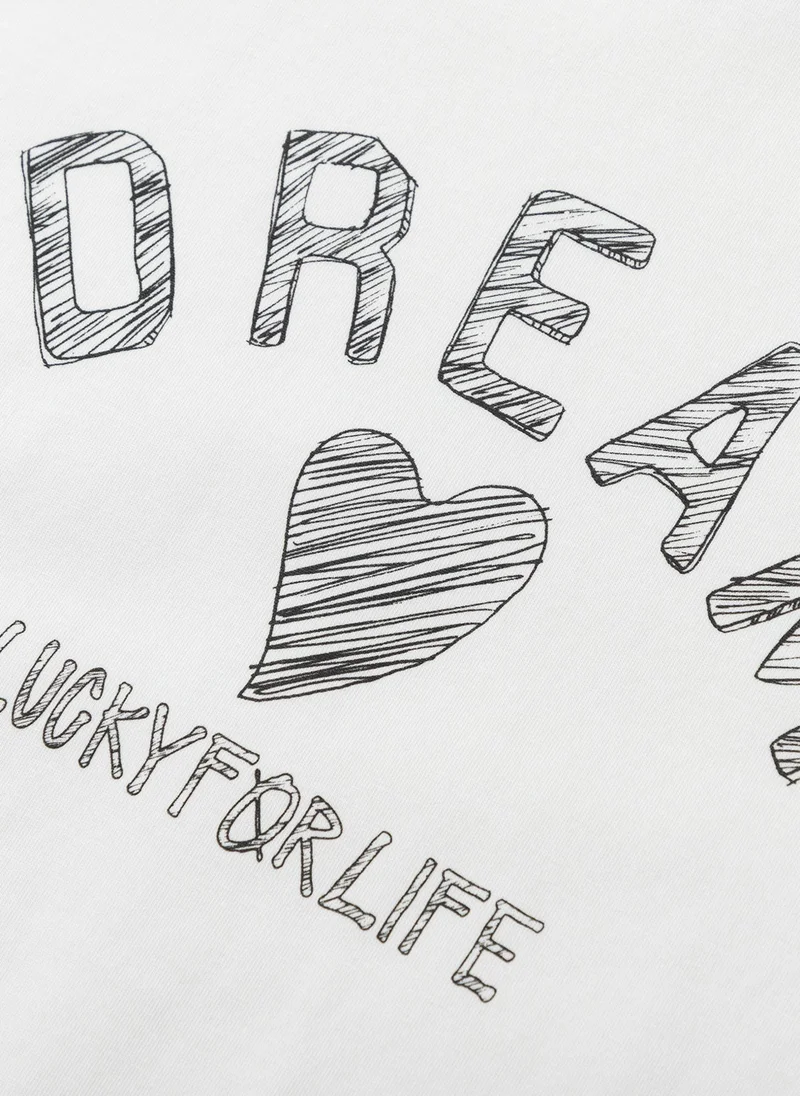 DREAM
LUCKYFØRLIFE